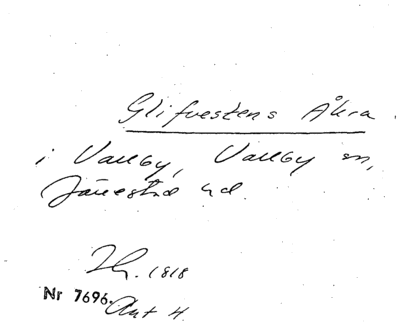 Glifvestens Åkra
i Vallby, Vallby sn,
Järrestad hd.
Th. 1818
Nr 7696. Ant 4.